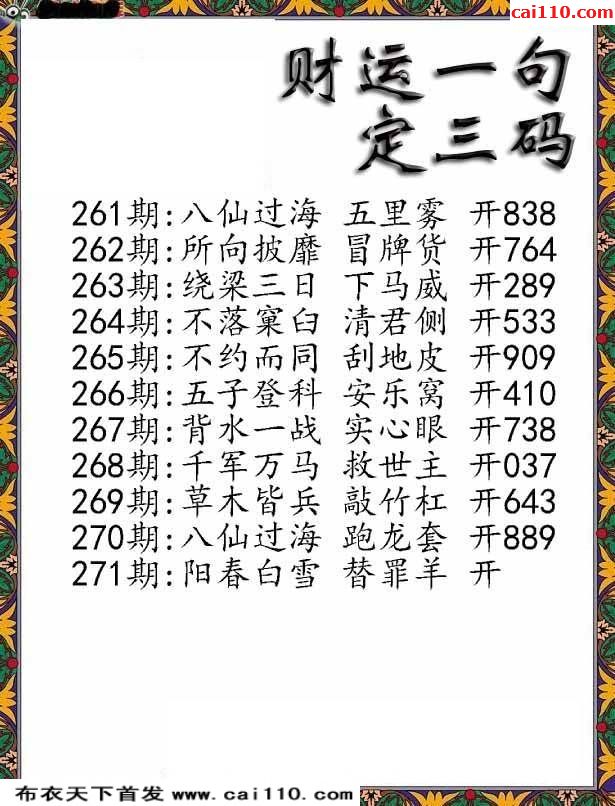 cai110.com
财运一句
定三码
261期:八仙过海 五里雾 开838
262期:所向披靡 冒牌货 开764
263期:绕梁三日 下马威 开289
264期:不落窠臼 清君侧 开533
265期:不约而同 刮地皮 开909
266期:五子登科 安乐窝 开410
267期:背水一战 实心眼 开738
268期:千军万马 救世主 开037
269期:草木皆兵 敲竹杠 开643
270期:八仙过海 跑龙套 开889
271期:阳春白雪 替罪羊 开
布衣天下首发 www.cai110.com